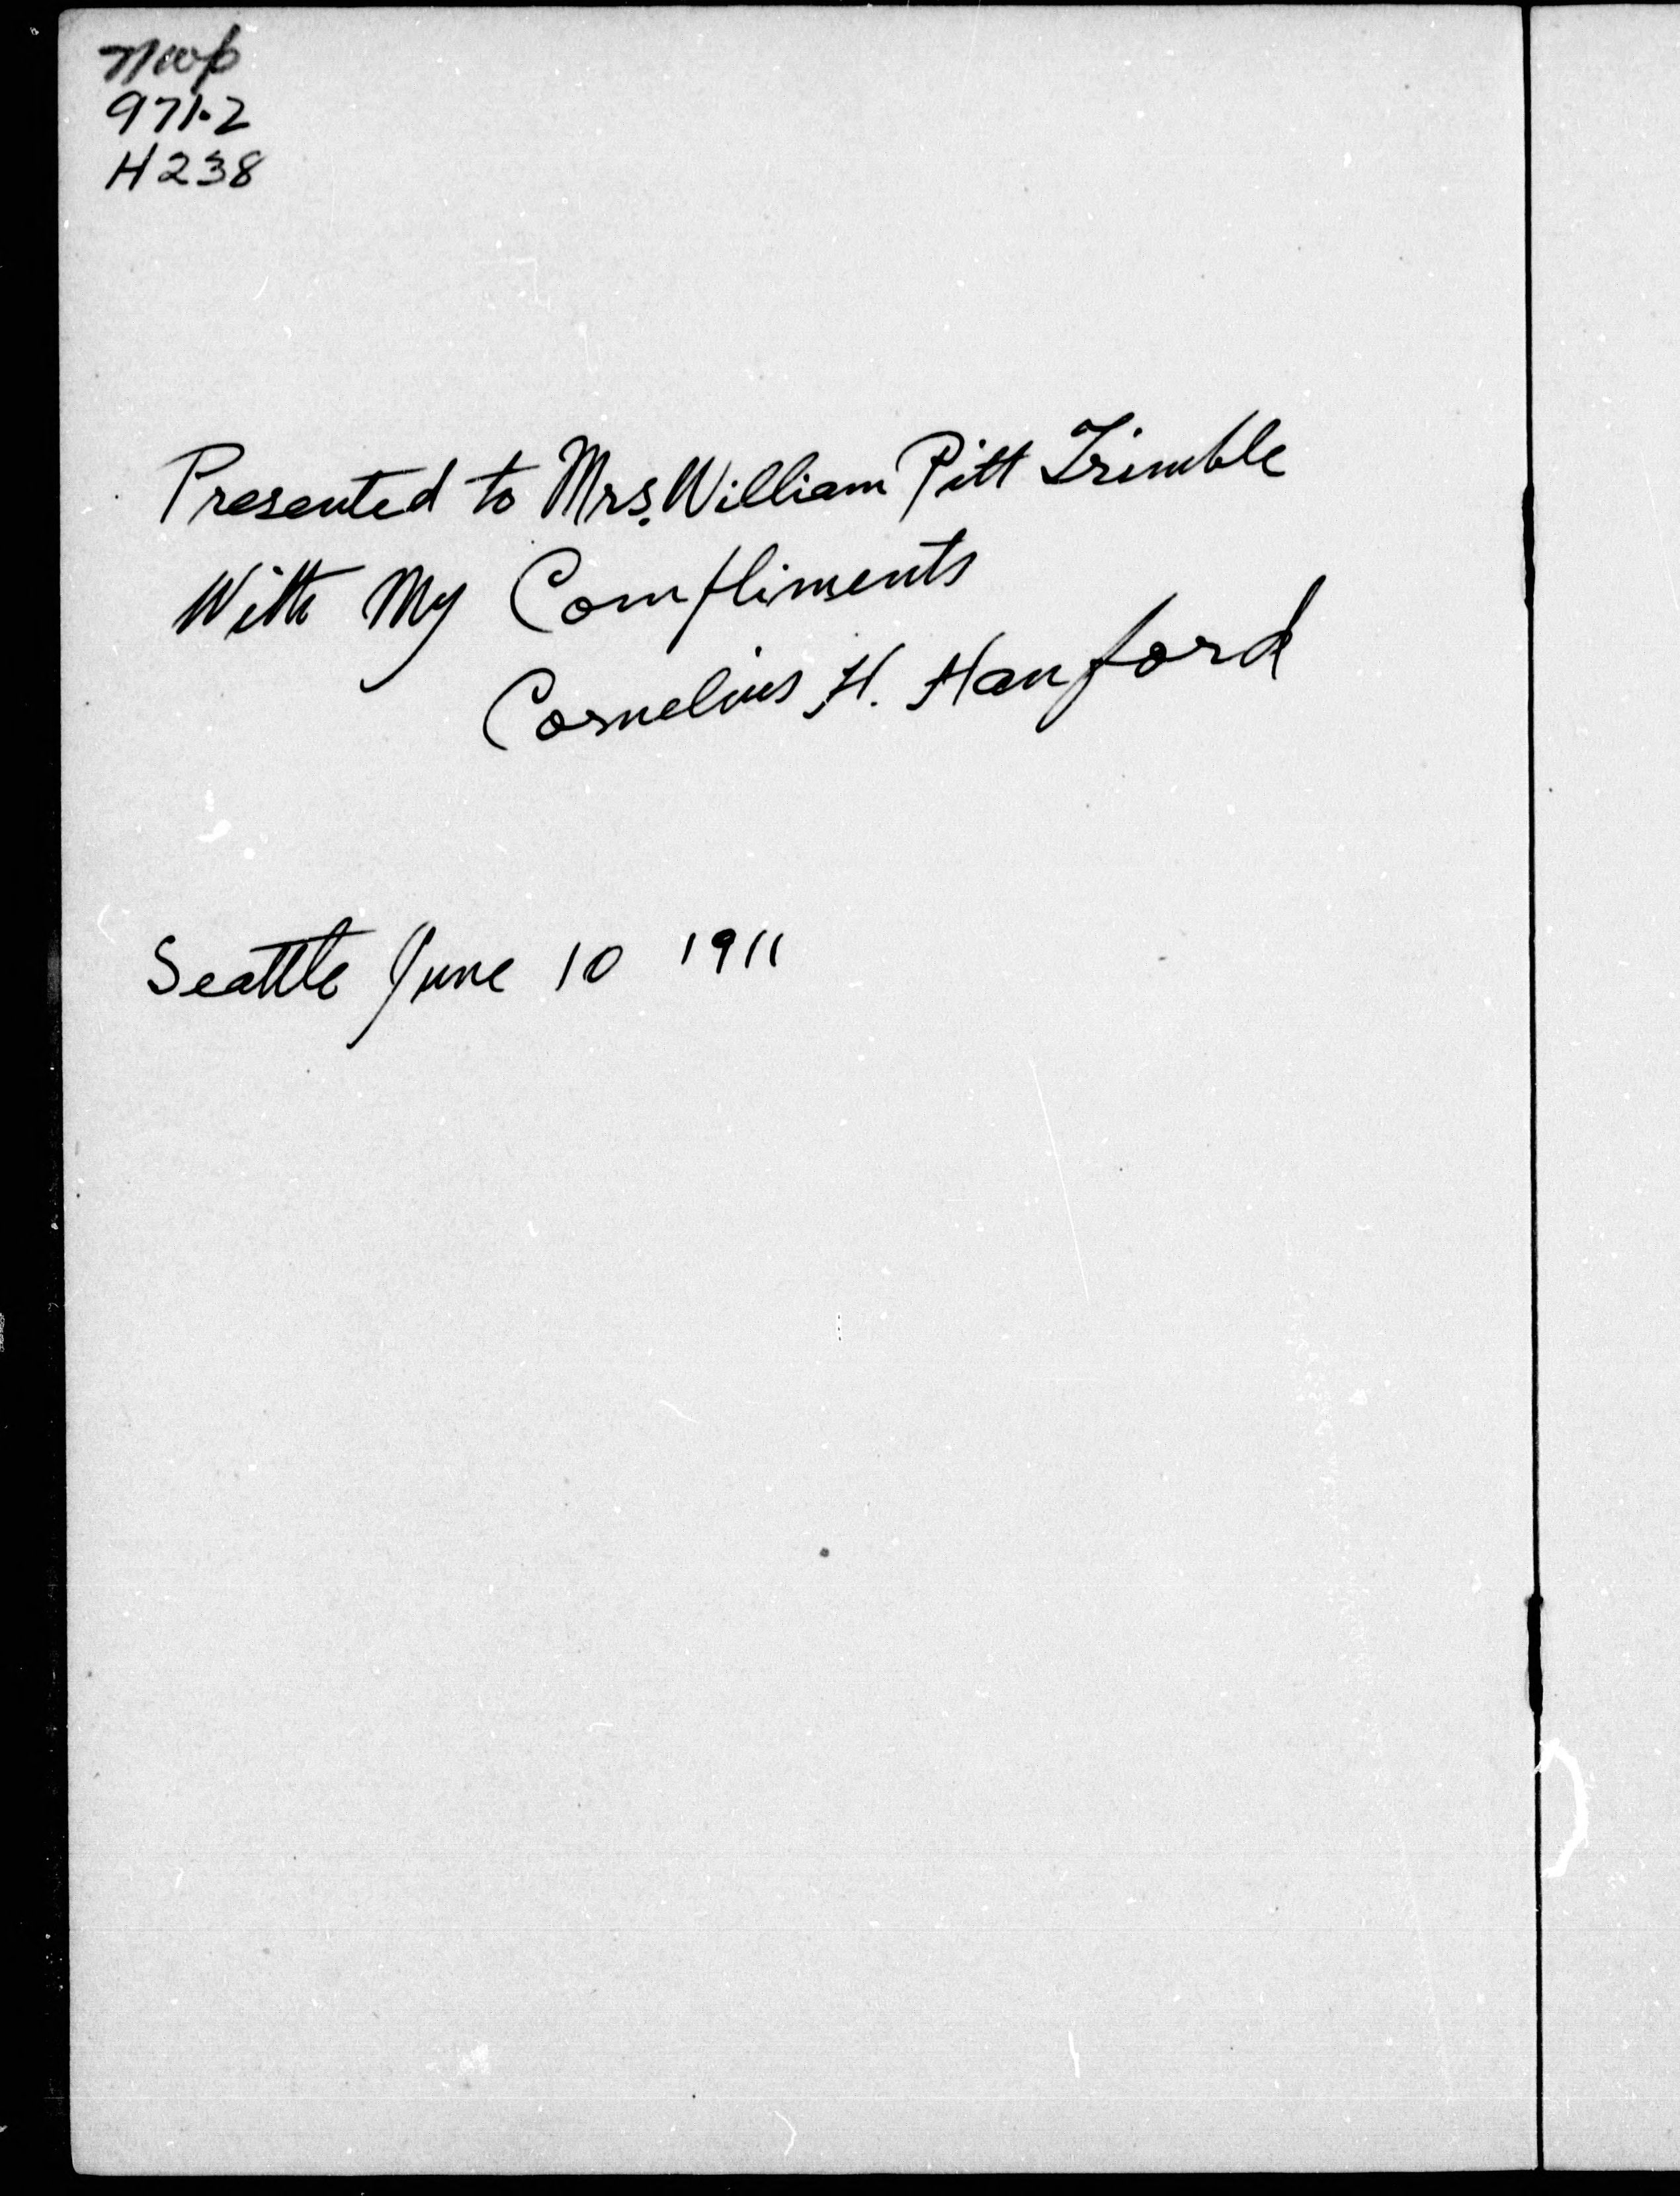 NWp
971.2
H238
Presented to Mrs. William Pitt Trimble
With My Compliments
Cornelius H. Hanford
Seattle June 10 1911